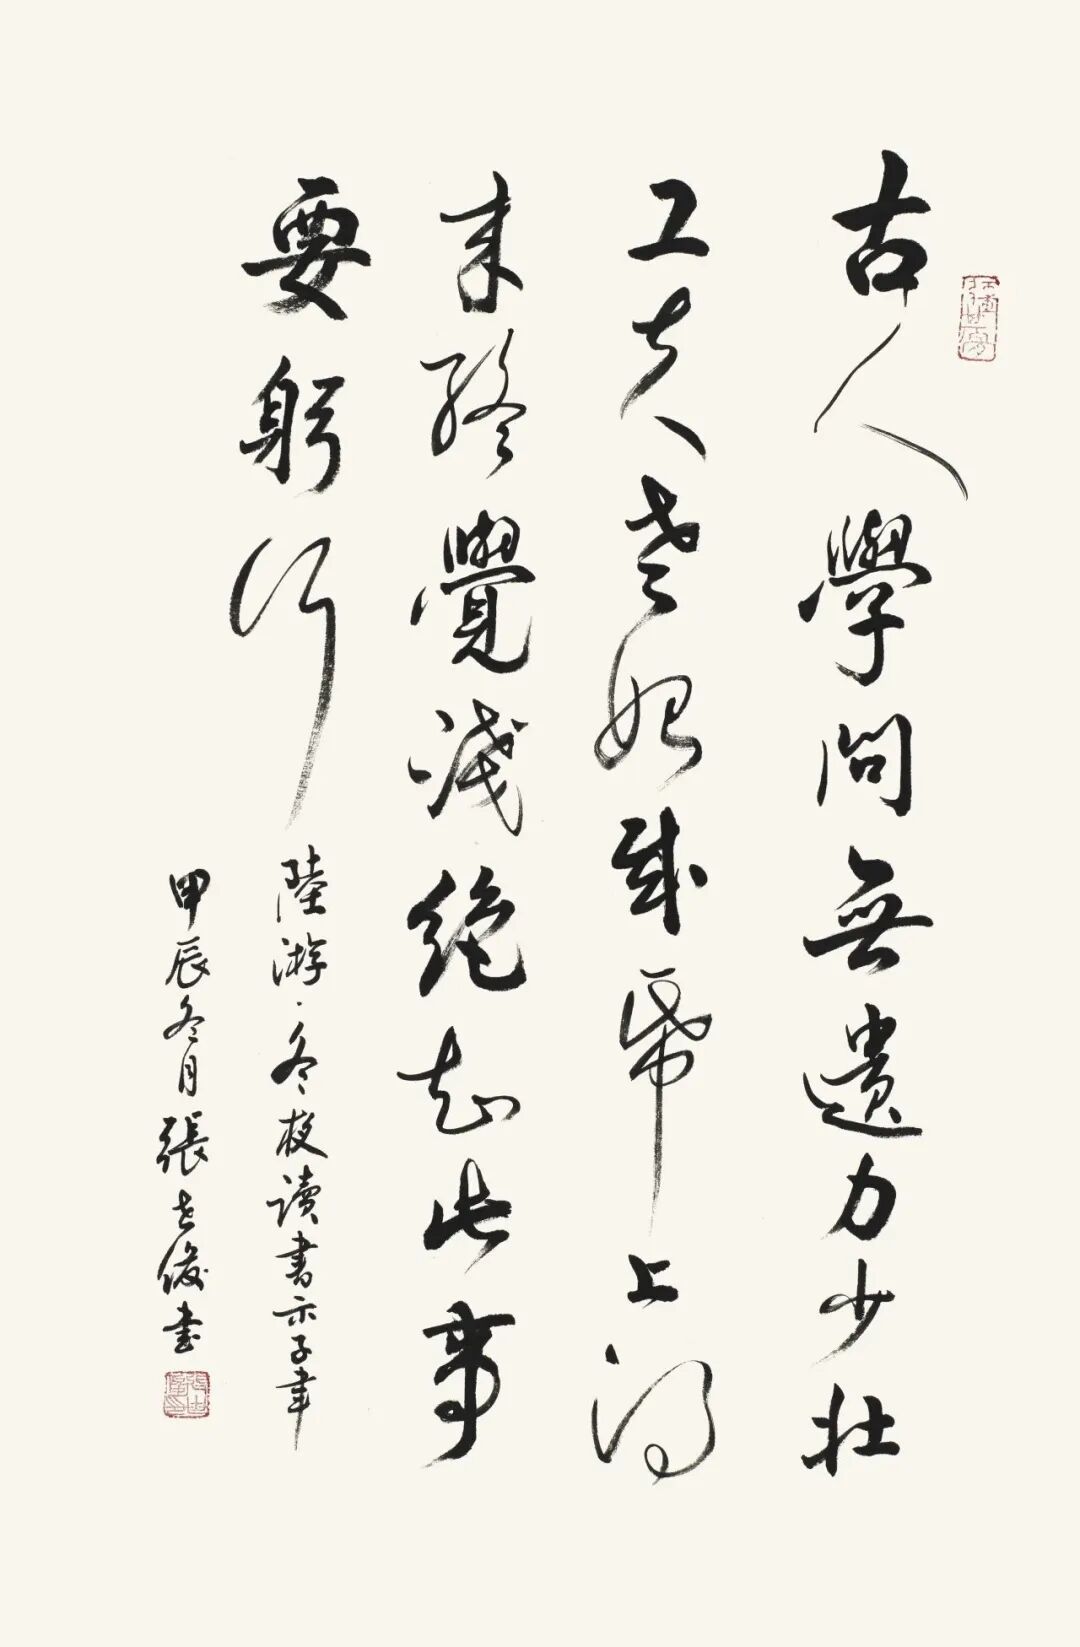 古人學問無遺力少壯
工夫老始成帋上得
來終覺淺絕知此事
要躬行
陸游·冬夜讀書示子聿
甲辰冬月張世俊書